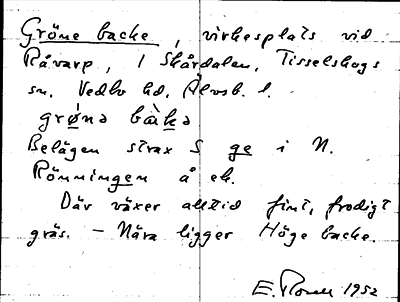 Gröne backe, virkesplats vid
Råvarp, i Skårdalen, Tisselskogs
sn. Vedbo hd. Älvsb. l.
grønə bàkə
Belägen strax S ge i N.
Rönningen å ek.
Där växer alltid fint, frodigt
gräs. – Nära ligger Höge backe.
E. 1952